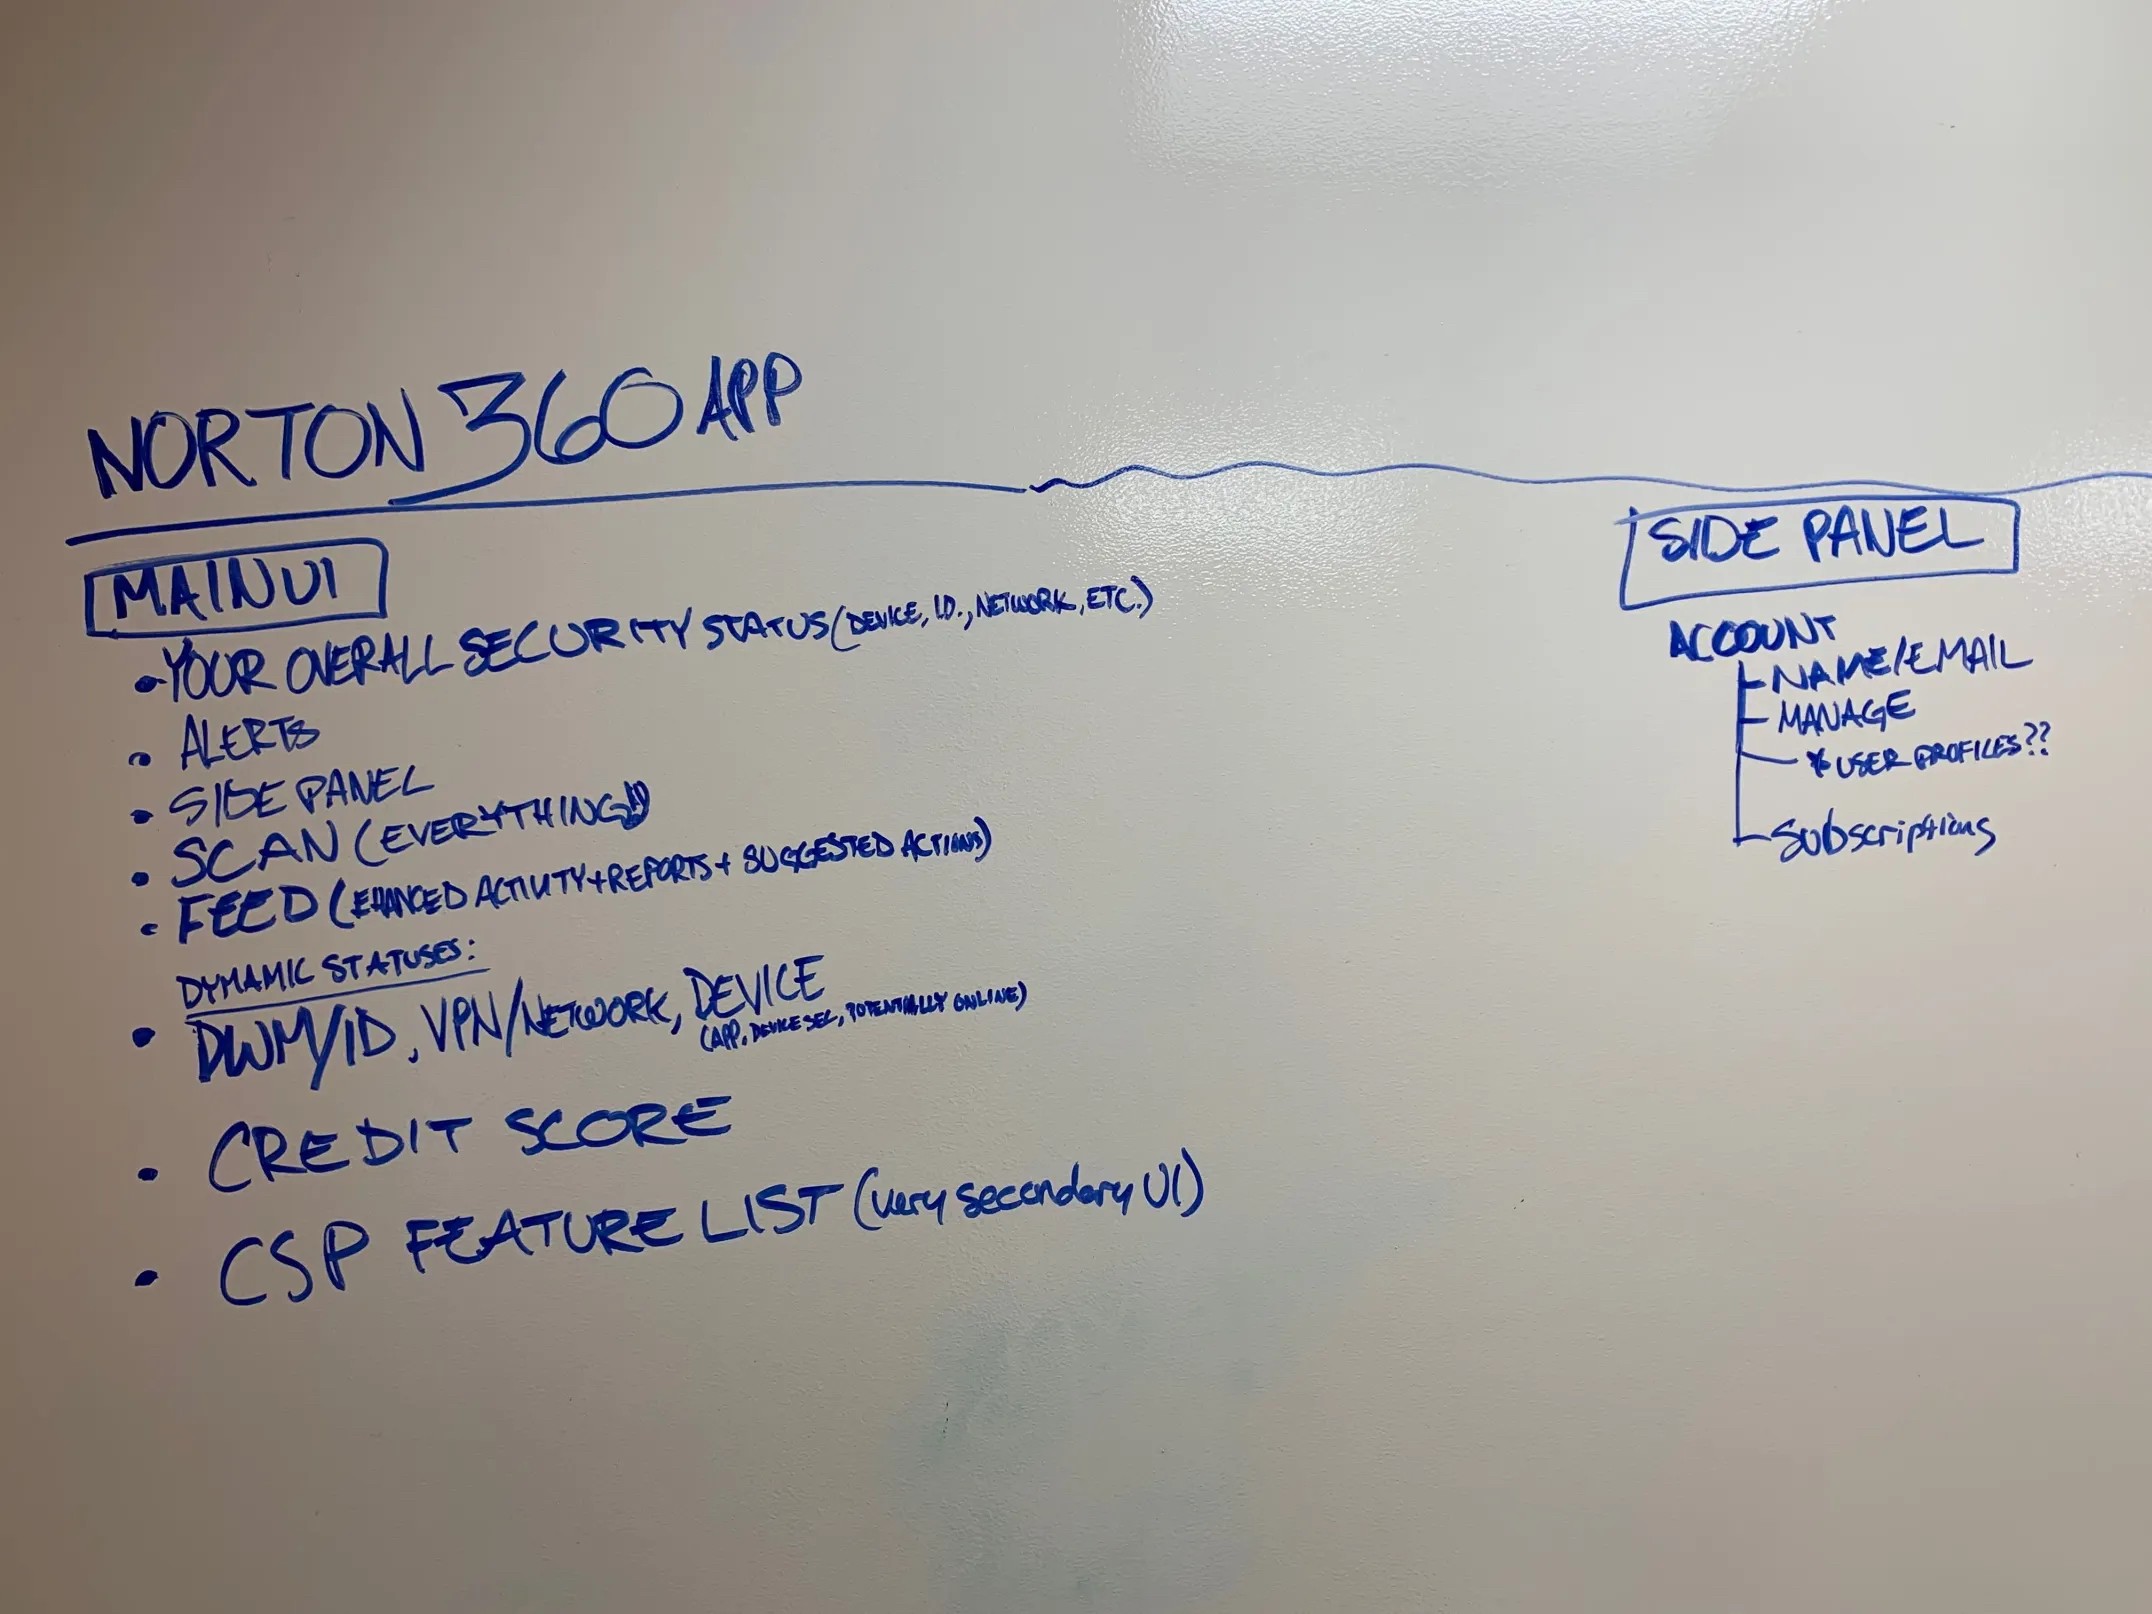 NORTON 360 APP
MAIN UI
• YOUR OVERALL SECURITY STATUS (DEVICE, I.D., NETWORK, ETC.)
• ALERTS
• SIDE PANEL
• SCAN (EVERYTHING!)
• FEED (EHANCED ACTIVITY + REPORTS + SUGGESTED ACTIONS)
DYMAMIC STATUSES:
• DWM/ID, VPN/NETWORK, DEVICE
(APP, DEVICE SEC, POTENTIALLY ONLINE)
• CREDIT SCORE
• CSP FEATURE LIST (very secondary UI)
SIDE PANEL
ACCOUNT
- NAME/EMAIL
- MANAGE
- * USER PROFILES??
- Subscriptions